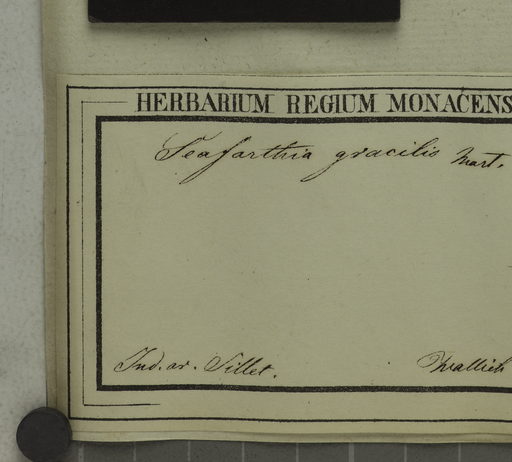 HERBARIUM REGIUM MONACENS
Seaforthia gracilis Mart.
Ind. or. Sillet. Wallich